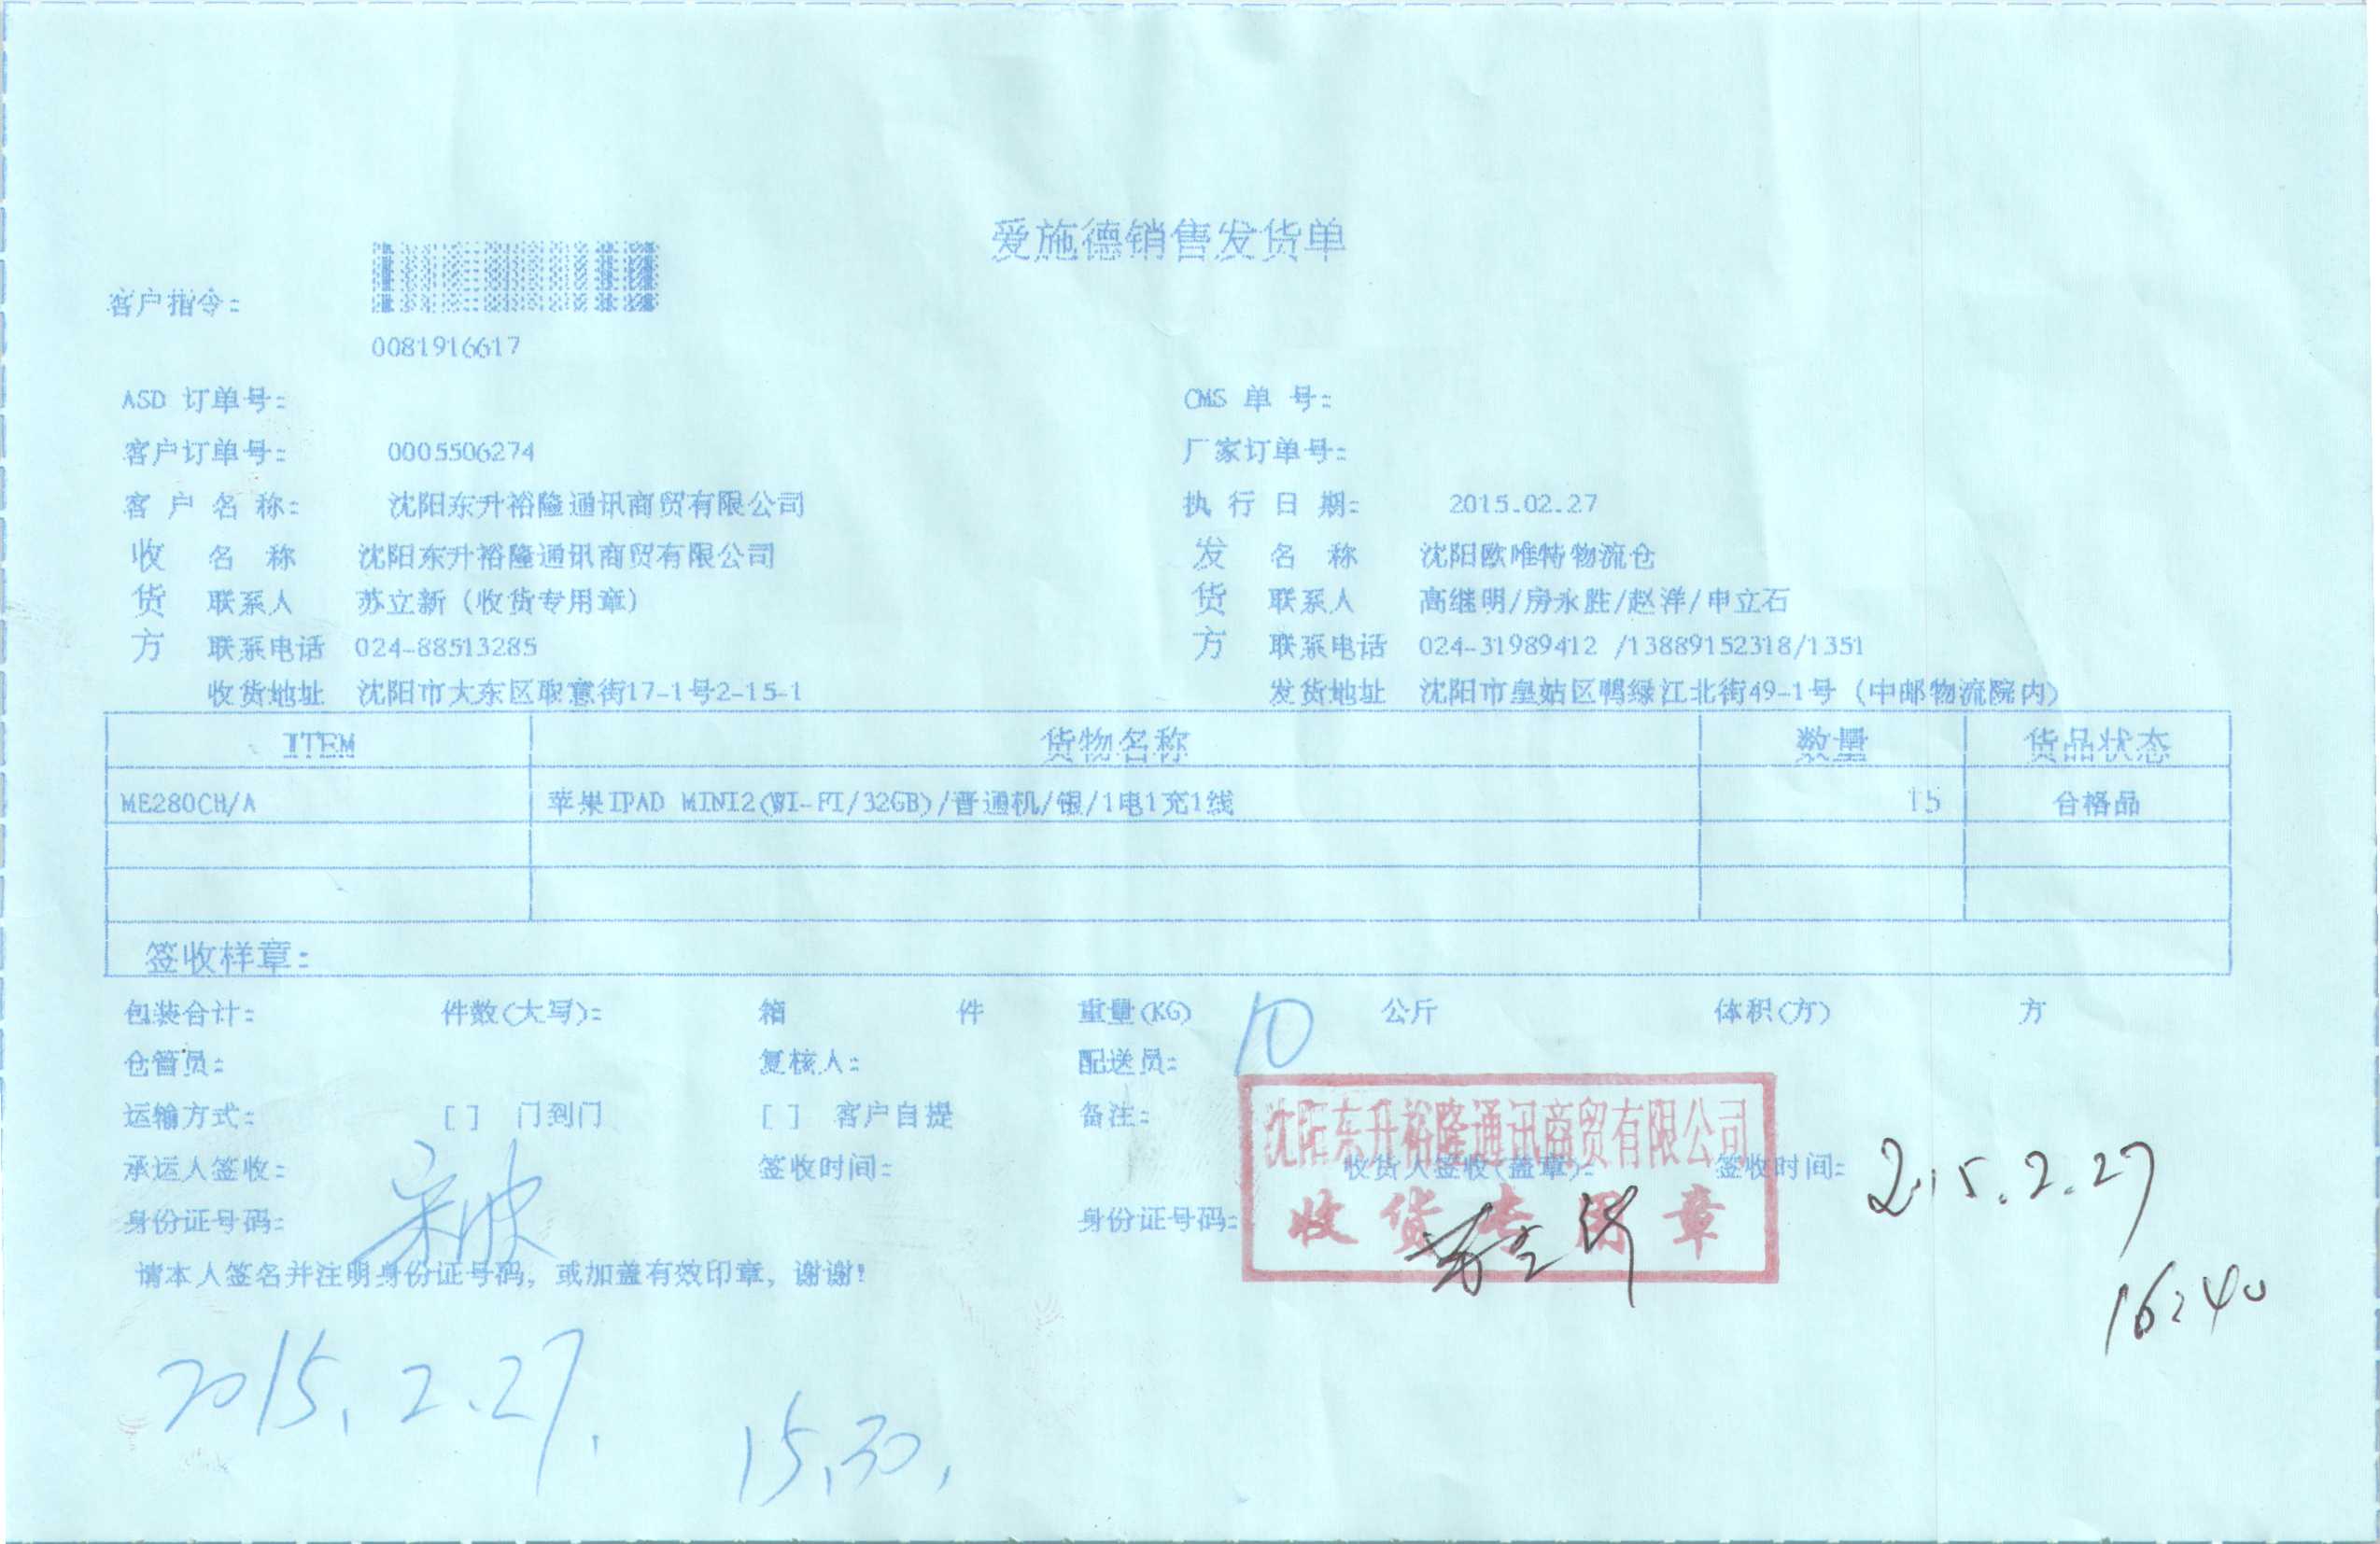 爱施德销售发货单
客户指令:
0081916617
ASD 订单号: CMS 单 号:
客户订单号: 0005506274 厂家订单号:
客 户 名 称: 沈阳东升裕隆通讯商贸有限公司 执 行 日 期: 2015.02.27
收 名 称 沈阳东升裕隆通讯商贸有限公司 发 名 称 沈阳欧唯特物流仓
货 联系人 苏立新(收货专用章) 货 联系人 高继明/房永胜/赵洋/申立石
方 联系电话 024-88513285 方 联系电话 024-31989412 /13889152318/1351
收货地址 沈阳市大东区取意街17-1号2-15-1 发货地址 沈阳市皇姑区鸭绿江北街49-1号(中邮物流院内)
ITEM 货物名称 数量 货品状态
ME280CH/A 苹果IPAD MINI2(WI-FI/32GB)/普通机/银/1电1充1线 15 合格品
签收样章:
包装合计: 件数(大写): 箱 件 重量(KG) 10 公斤 体积(方) 方
仓管员: 复核人: 配送员:
运输方式: [ ] 门到门 [ ] 客户自提 备注:
沈阳东升裕隆通讯商贸有限公司
承运人签收: 签收时间: 收货人签收(盖章): 签收时间: 2015.2.27
收货专用章
身份证号码: 身份证号码:
请本人签名并注明身份证号码, 或加盖有效印章, 谢谢!
16:40
2015.2.27.
15.30.